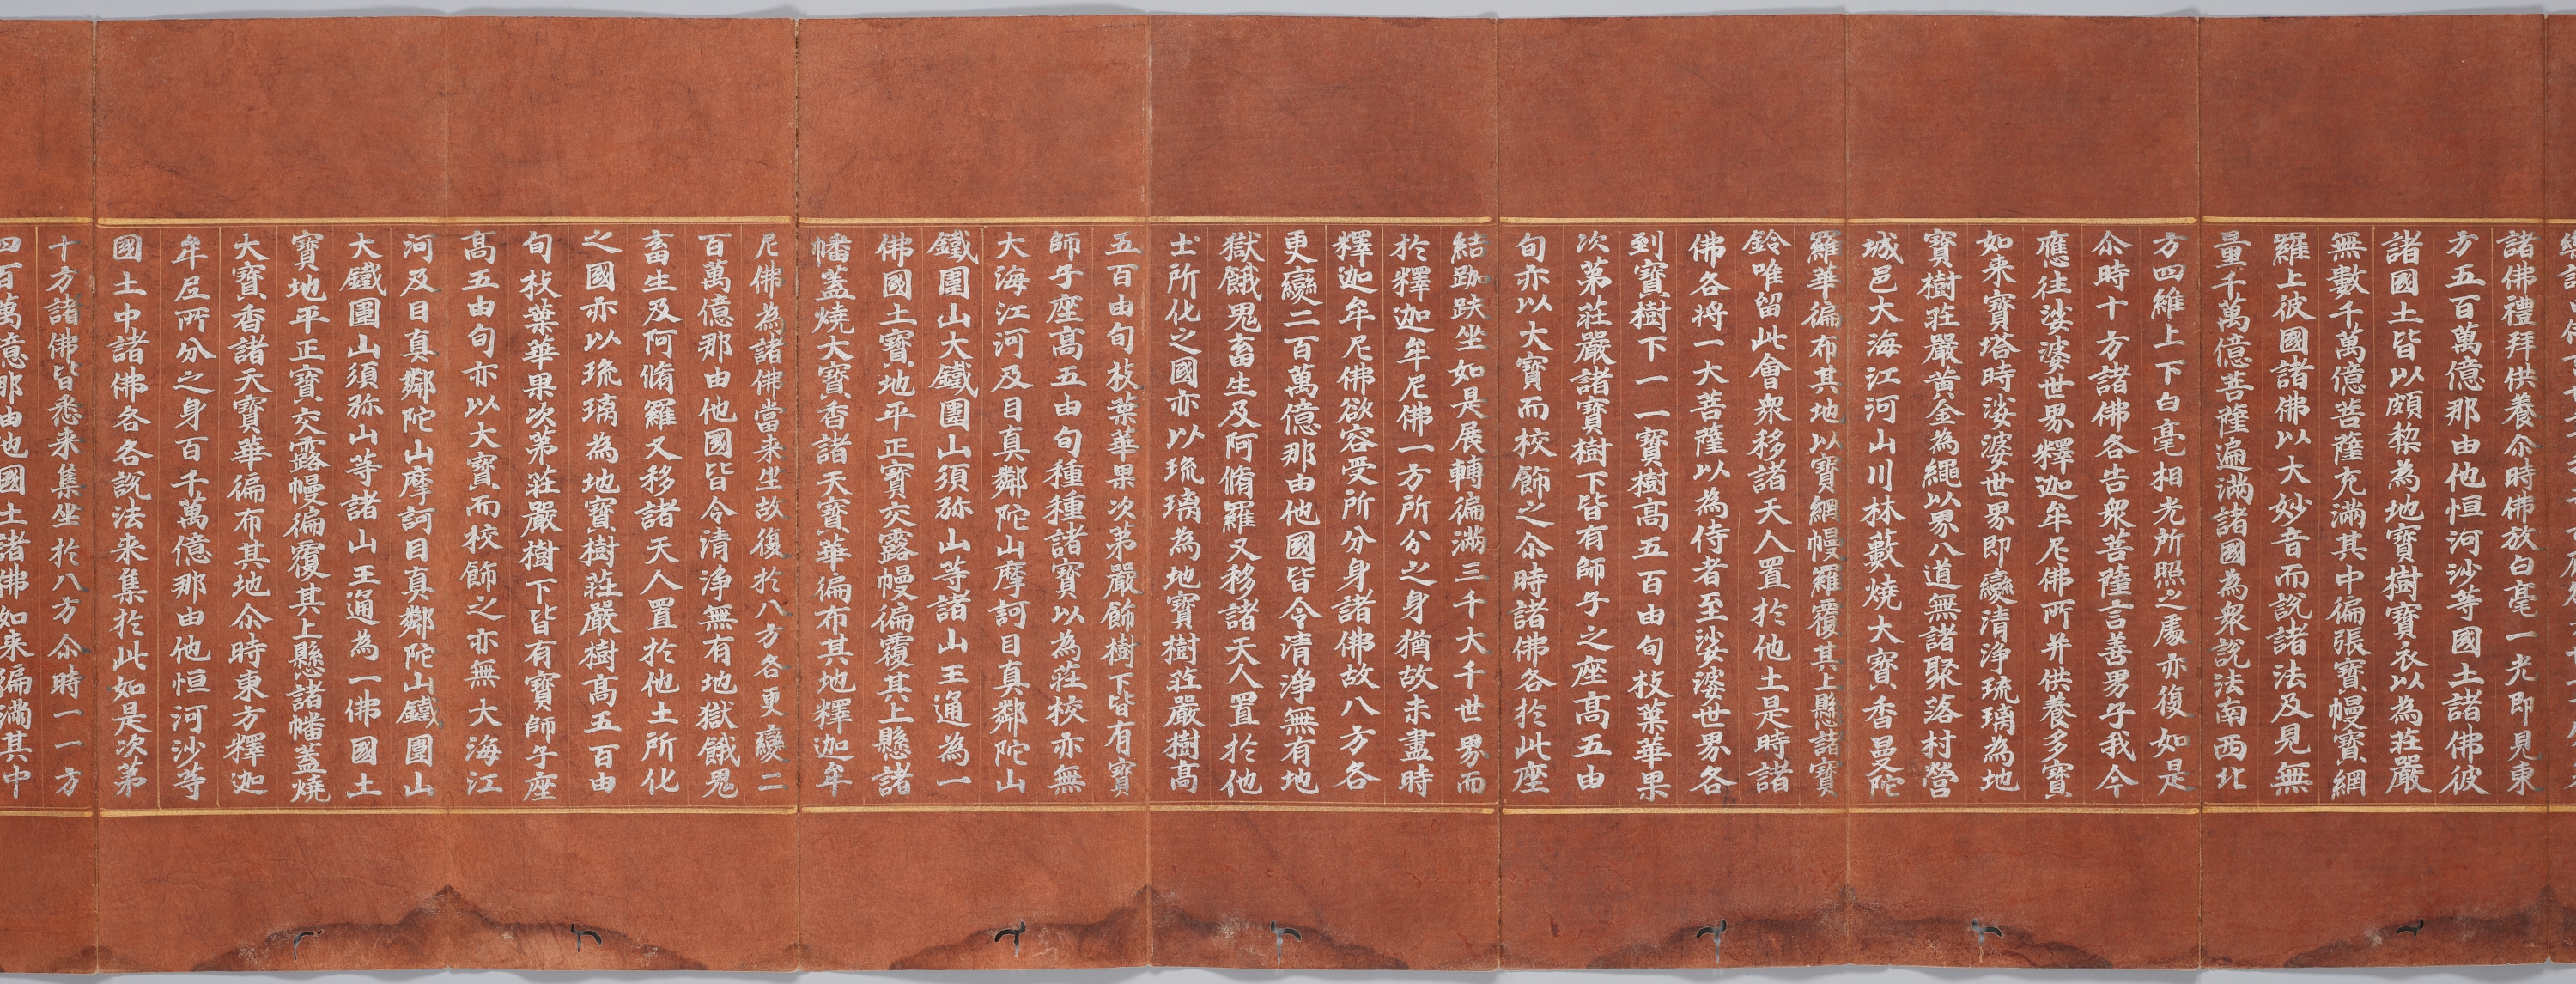 諸佛禮拜供養尒時佛放白毫一光即見東
方五百萬億那由他恒河沙等國土諸佛彼
諸國土皆以頗黎為地寶樹寶衣以為莊嚴
無數千萬億菩薩充滿其中徧張寶幔寶網
羅上彼國諸佛以大妙音而說諸法及見無
量千萬億菩薩遍滿諸國為衆說法南西北
方四維上下白毫相光所照之處亦復如是
尒時十方諸佛各告衆菩薩言善男子我今
應往娑婆世界釋迦牟尼佛所并供養多寶
如来寶塔時娑婆世界即變清淨琉璃為地
寶樹莊嚴黄金為繩以界八道無諸聚落村營
城邑大海江河山川林藪燒大寶香曼陀
羅華徧布其地以寶網幔羅覆其上懸諸寶
鈴唯留此會衆移諸天人置於他土是時諸
佛各将一大菩薩以為侍者至娑婆世界各
到寶樹下一一寶樹高五百由旬枝葉華果
次第莊嚴諸寶樹下皆有師子之座高五由
旬亦以大寶而校飾之尒時諸佛各於此座
結跏趺坐如是展轉徧滿三千大千世界而
於釋迦牟尼佛一方所分之身猶故未盡時
釋迦牟尼佛欲容受所分身諸佛故八方各
更變二百萬億那由他國皆令清淨無有地
獄餓鬼畜生及阿脩羅又移諸天人置於他
土所化之國亦以琉璃為地寶樹莊嚴樹高
五百由旬枝葉華果次第嚴飾樹下皆有寶
師子座高五由句種種諸寶以為莊校亦無
大海江河及目真鄰陀山摩訶目真鄰陀山
鐵圍山大鐵圍山須弥山等諸山王通為一
佛國土寶地平正寶交露幔徧覆其上懸諸
幡蓋燒大寶香諸天寶華徧布其地釋迦牟
尼佛為諸佛當来坐故復於八方各更變二
百萬億那由他國皆令清淨無有地獄餓鬼
畜生及阿脩羅又移諸天人置於他土所化
之國亦以琉璃為地寶樹莊嚴樹高五百由
旬枝葉華果次第莊嚴樹下皆有寶師子座
高五由旬亦以大寶而校飾之亦無大海江
河及目真鄰陀山摩訶目真鄰陀山鐵圍山
大鐵圍山須弥山等諸山王通為一佛國土
寶地平正寶交露幔徧覆其上懸諸幡蓋燒
大寶香諸天寶華徧布其地尒時東方釋迦
牟尼所分之身百千萬億那由他恒河沙等
國土中諸佛各各說法来集於此如是次第
十方諸佛皆悉来集坐於八方尒時一一方
四百萬億那由他國土諸佛如来徧滿其中